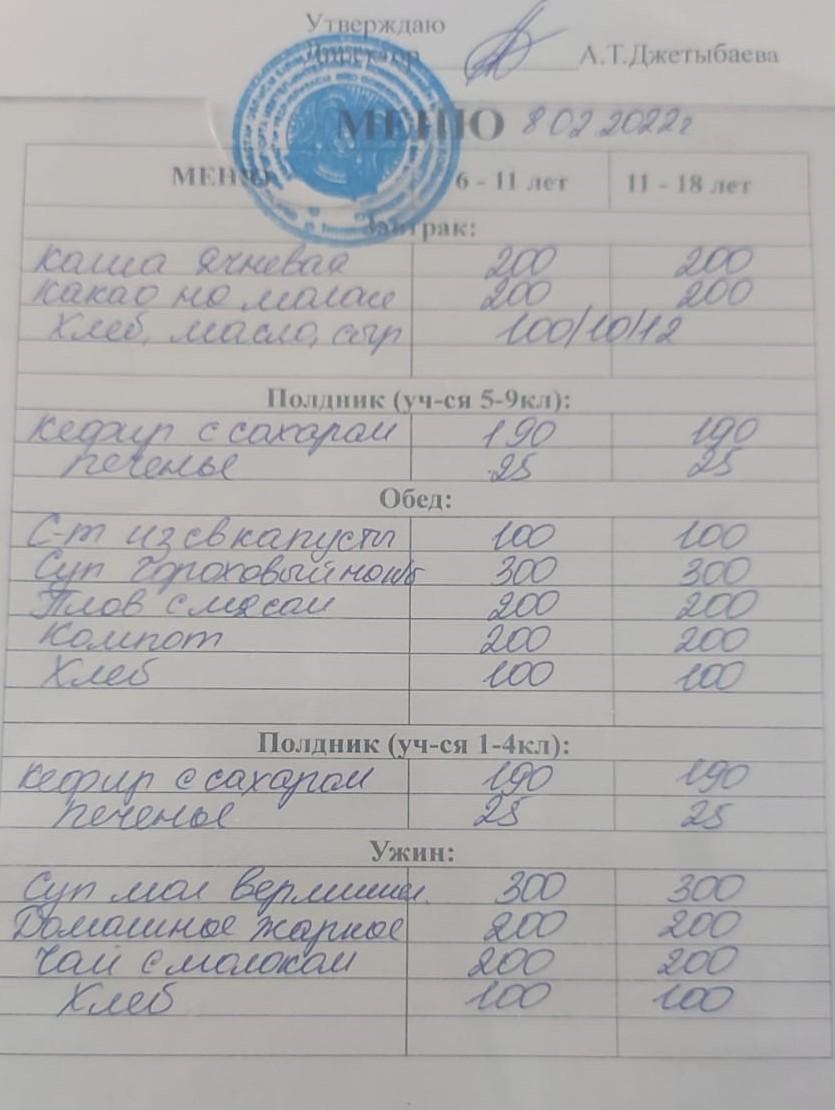 Утверждаю
Директор А.Т.Джетыбаева
МЕНЮ 8 02 2022г
МЕНЮ 6 - 11 лет 11 - 18 лет
Завтрак:
Каша ячневая 200 200
Какао на молоке 200 200
Хлеб, масло, сыр 100/10/12
Полдник (уч-ся 5-9кл):
Кефир с сахаром 190 190
печенье 25 25
Обед:
С-т из св капусты 100 100
Суп гороховый 300 300
Плов с мясом 200 200
Компот 200 200
Хлеб 100 100
Полдник (уч-ся 1-4кл):
Кефир с сахаром 190 190
печенье 25 25
Ужин:
Суп мол вермишел. 300 300
Домашное жаркое 200 200
Чай с молоком 200 200
Хлеб 100 100